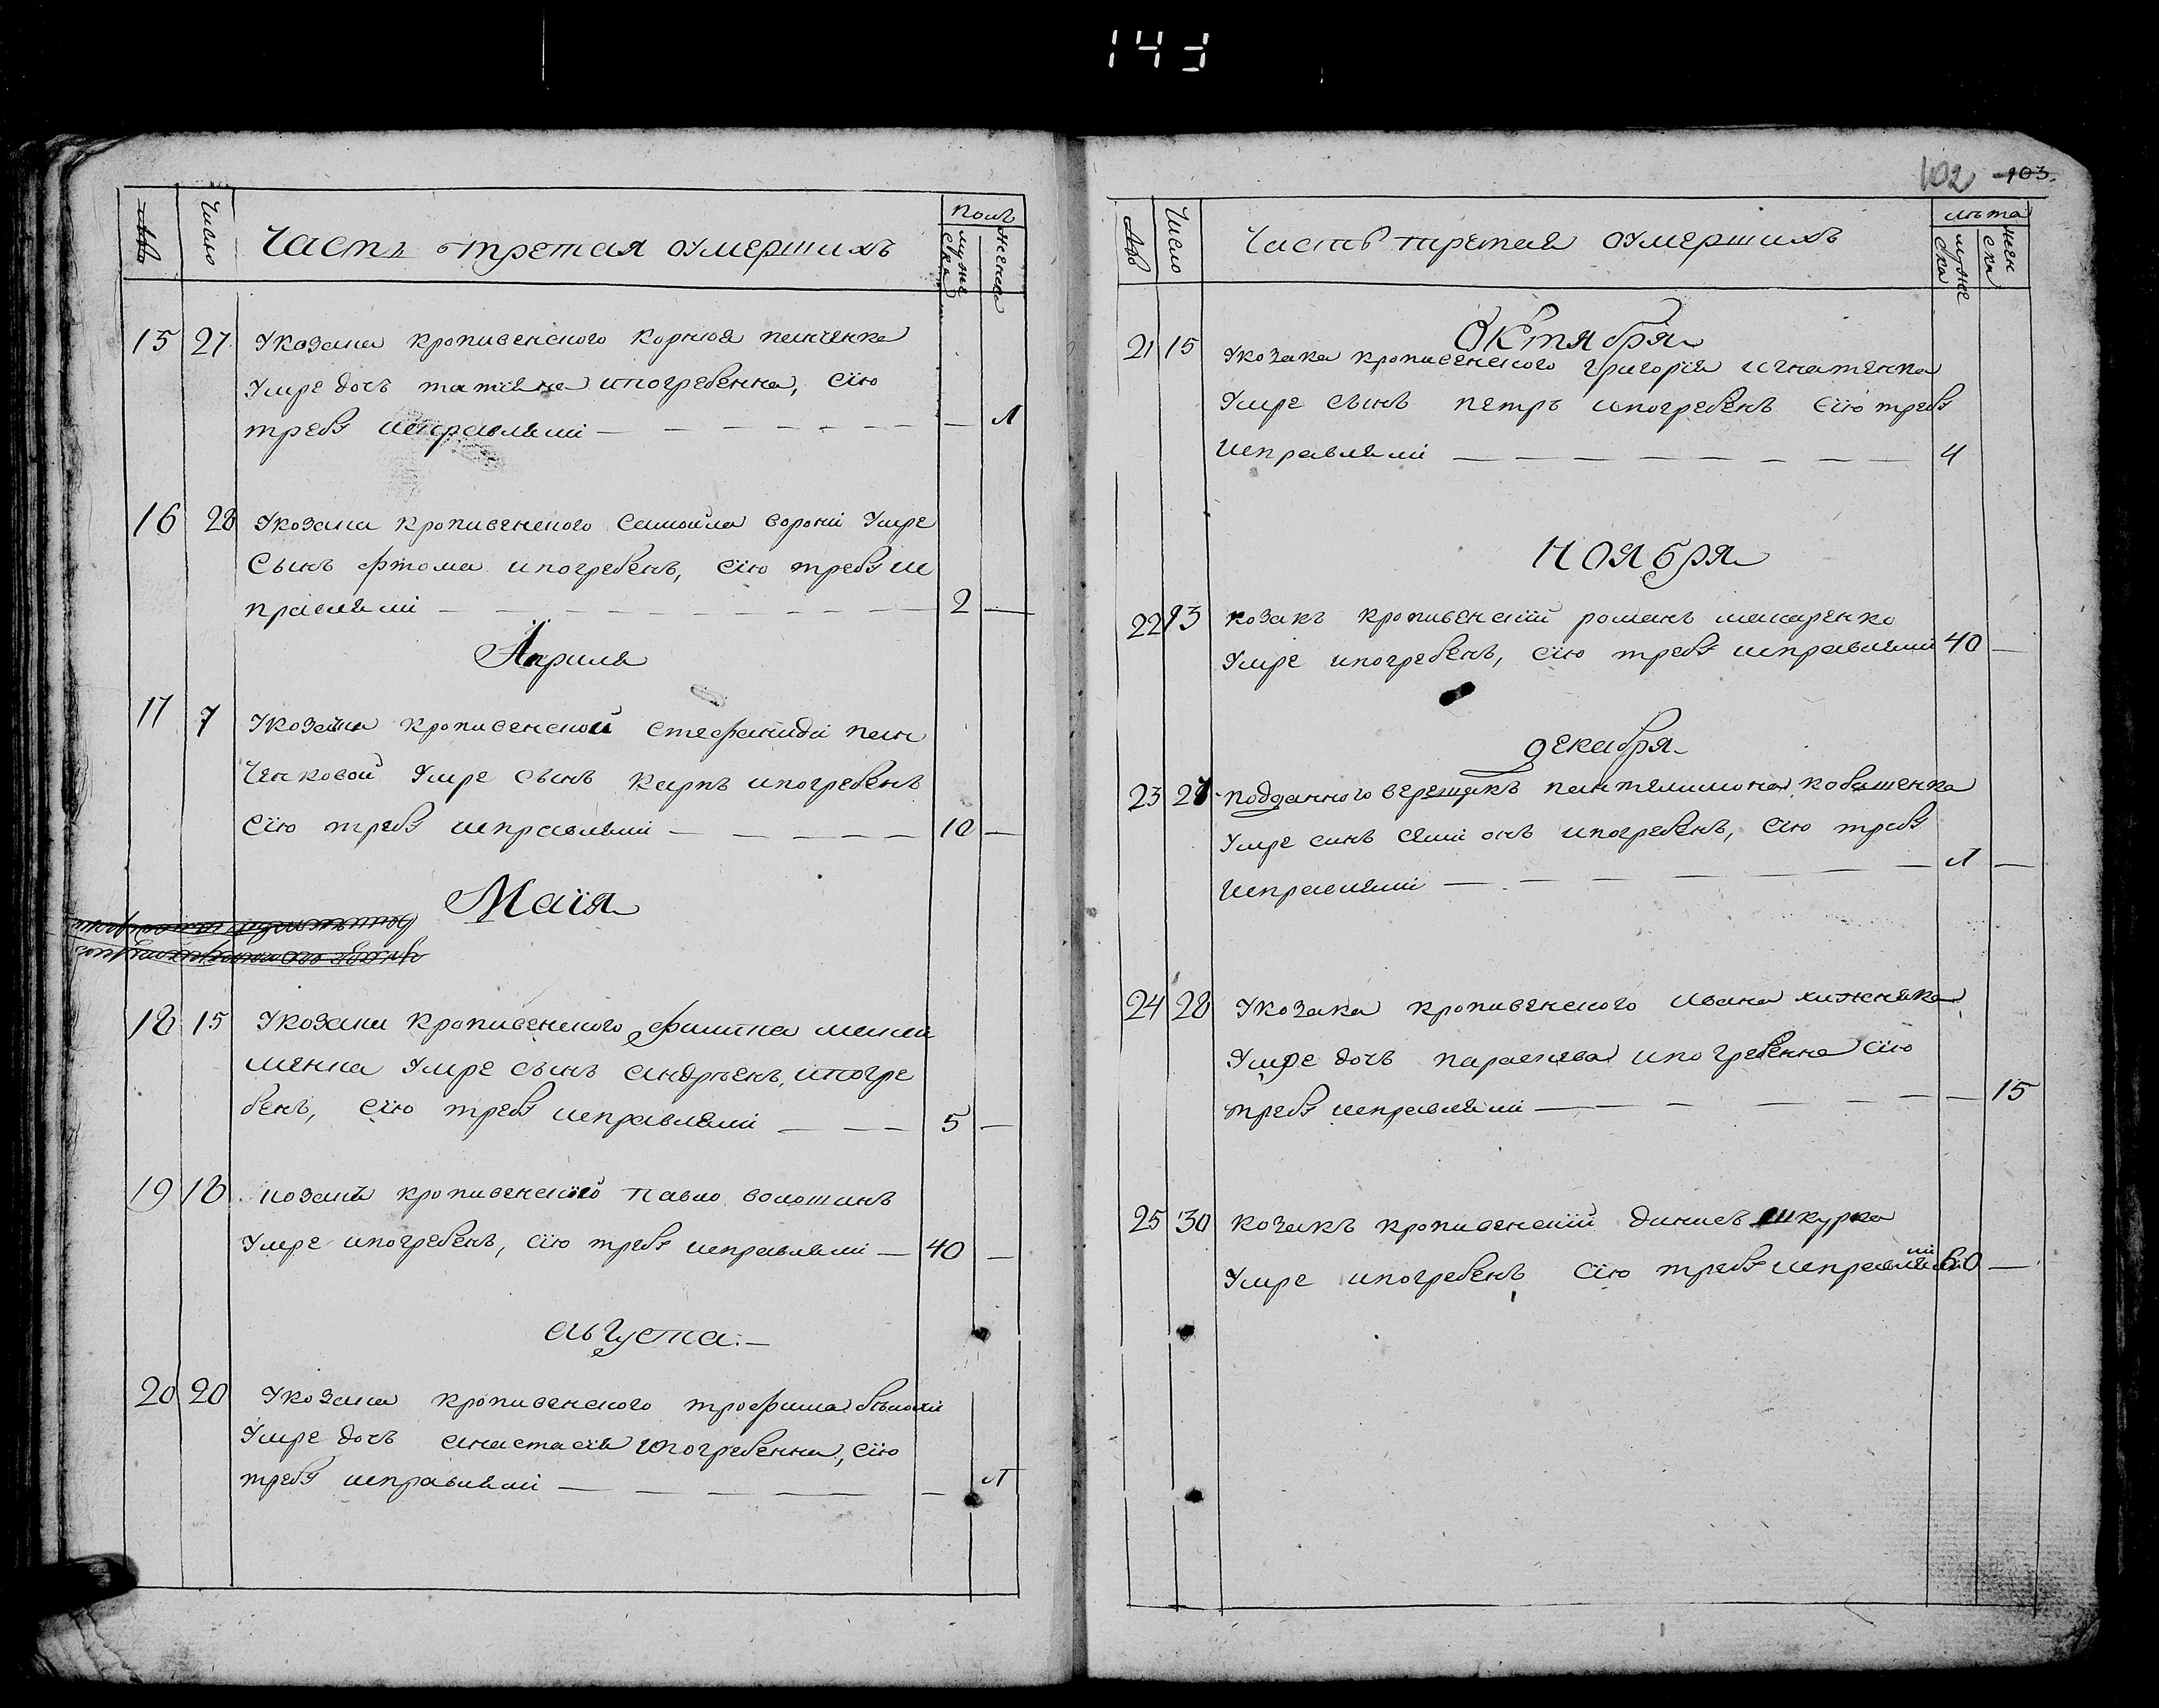 143
Число
Часть третая оумершихъ
Полъ
мужеска
женска
15 27 У козака кропивенского Корнѣя
Умре дочъ татіяна ипогребенна, сїю
требу исправлялъ — 1
16 28 У козака кропивенского Самойла ворони Умре
Сынъ ипогребенъ, сїю требу ис
правлялъ — 2 —
Априля
17 7 У козачки кропивенской стефаниди пан
ченковой Умре сынъ карпъ ипогребенъ
сїю требу исправлялъ — 10 —
Маїя
18 15 У козака Кропивенского
менка Умре сынъ андрѣенъ, ипогре
бенъ, сїю требу исправлялъ — 5 —
19 18 козакъ кропивенскїй павло волошинъ
Умре ипогребенъ, сїю требу исправлялъ — 40 —
августа
20 20 У козака кропивенского трофима
Умре дочъ анастасїя ипогребенна, сїю
требу исправлялъ — 1
102 103.
Число
Часть третая оумершихъ
лѣта
мужеска
женска
Октября
21 15 У козака кропивенского григорїя игнатенка
Умре сынъ петръ ипогребенъ сїю требу
исправлялъ — 4
Ноября
22 13 козакъ кропивенскїй романъ макаренко
Умре ипогребенъ, сїю требу исправлялъ 40 —
декабря
23 27 подданного пантелимона кобищенка
Умре синъ ипогребенъ, сїю требу
исправлялъ — 1 —
24 28 У козака кропивенского Ивана хижняка
Умре дочъ параскева ипогребенна сїю
требу исправлялъ — 15
25 30 козакъ кропивенскїй динисъ шкурка
Умре ипогребенъ, сїю требу исправлялъ 60 —